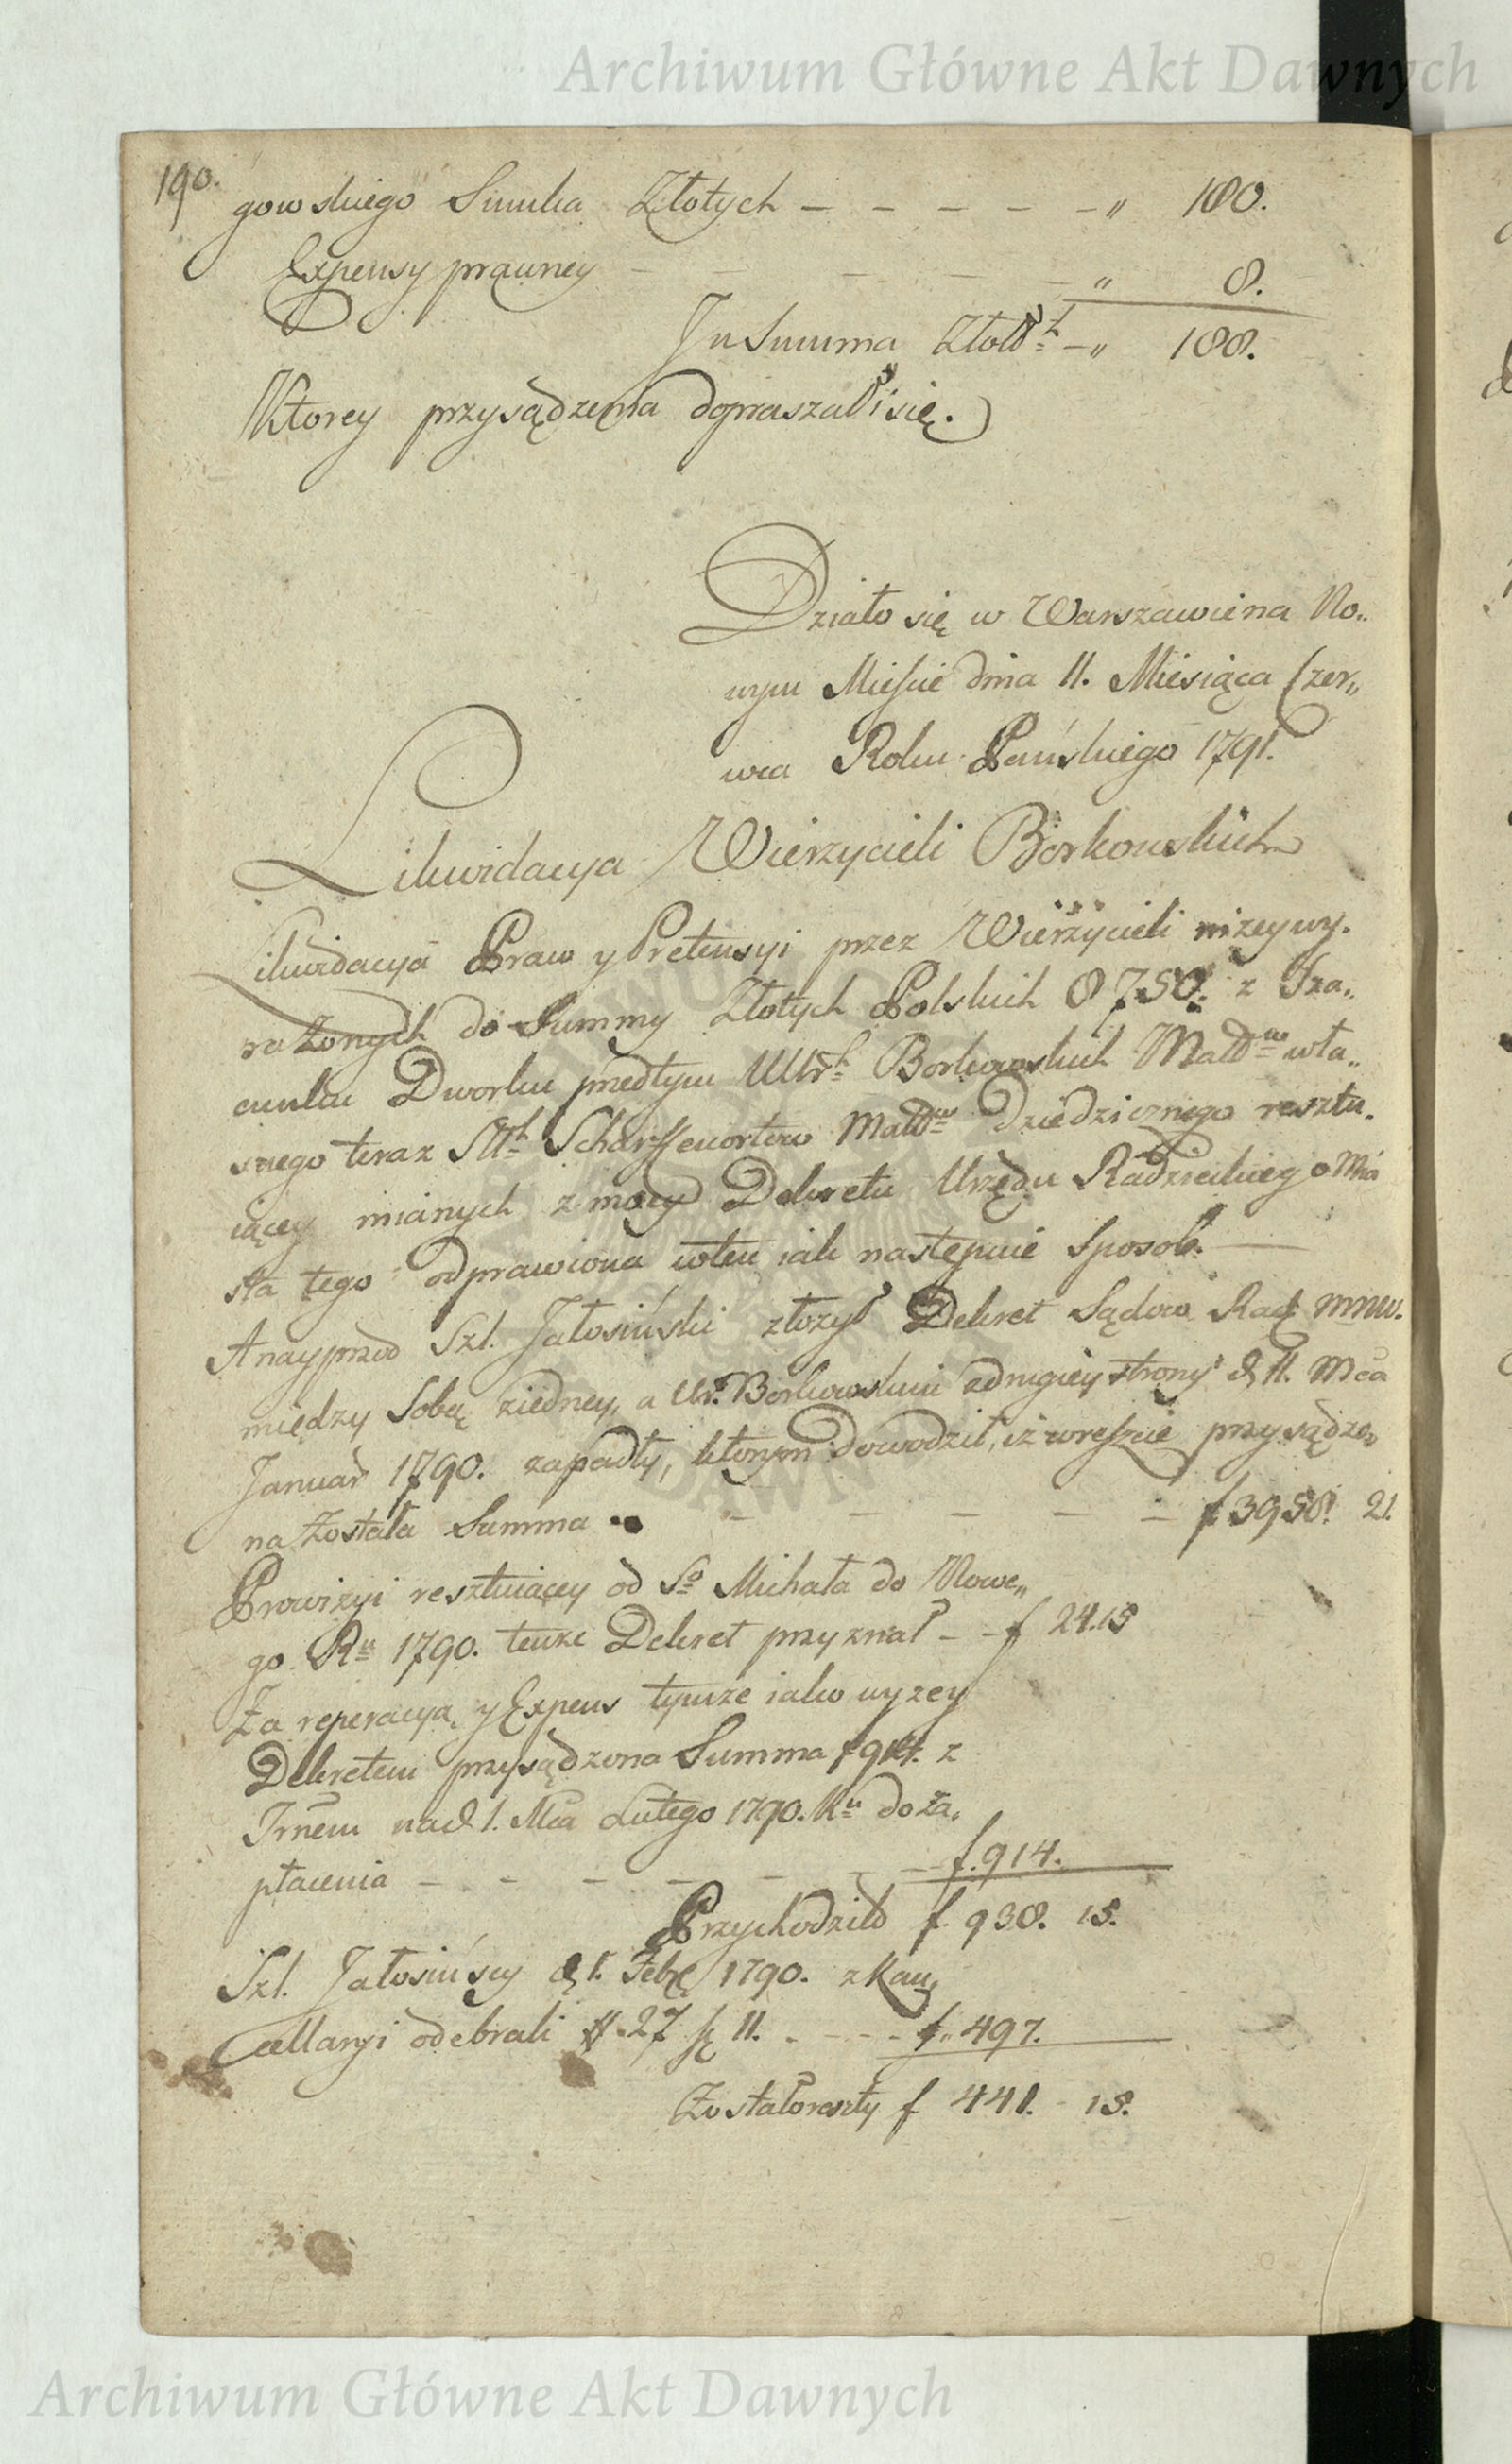 Archiwum Główne Akt Dawnych
190.
gowskiego Summa Złotych – – – – – „ 180.
Expensy prawney – – – – – „ 8.
In Summa Złott. – „ 188.
Ktorey przysądzenia dopraszali się.
Działo się w Warszawie na No„
wym Mieście dnia 11. Miesiąca Czer„
wca Roku Pańskiego 1791.
Likwidacya Wierzycieli Borkowskich
Likwidacya Praw y Pretensyi przez Wierzycieli niżey wy„
rażonych do Summy Złotych Polskich 8750. z Sza„
cunku Dworku przedtym Urch Borkowskich Małłw wła„
snego teraz Sttch Scharffenortow Małłw Dziedzicznego resztu„
iącey mianych z mocy Dekretu Urzędu Radzieckiego Mia
sta tego odprawiona wten iak następuie Sposob. –
A nayprzod Szl. Jałosiński złożył Dekret Sądow Rad: mnw.
między Sobą ziedney, a Ur. Borkowskiemi zdrugiey strony d. 11. Mca
Januar 1790. zapadły, ktorym dowodził, iż wreszcie przysądzo„
na Została Summa – – – – – f 3958. 21.
Prowizyi resztuiącey od So Michała do Nowe„
go Ru 1790. tenże Dekret przyznał – – f 24.15
Za reperacyą y Expens tymże iako wyżey
Dekretem przysądzona Summa f 914. z
Trnem na d. 1. Mca Lutego 1790. Ru do za„
płacenia – – – – – – – f. 914.
Przychodziło f. 938. 15.
Szl. Jałosińscy d. 1. Febr. 1790. z Kan„
cellaryi odebrali # 27 sz 11. – – – – f. 497.
Zostało reszty f 441. – 15.
Archiwum Główne Akt Dawnych